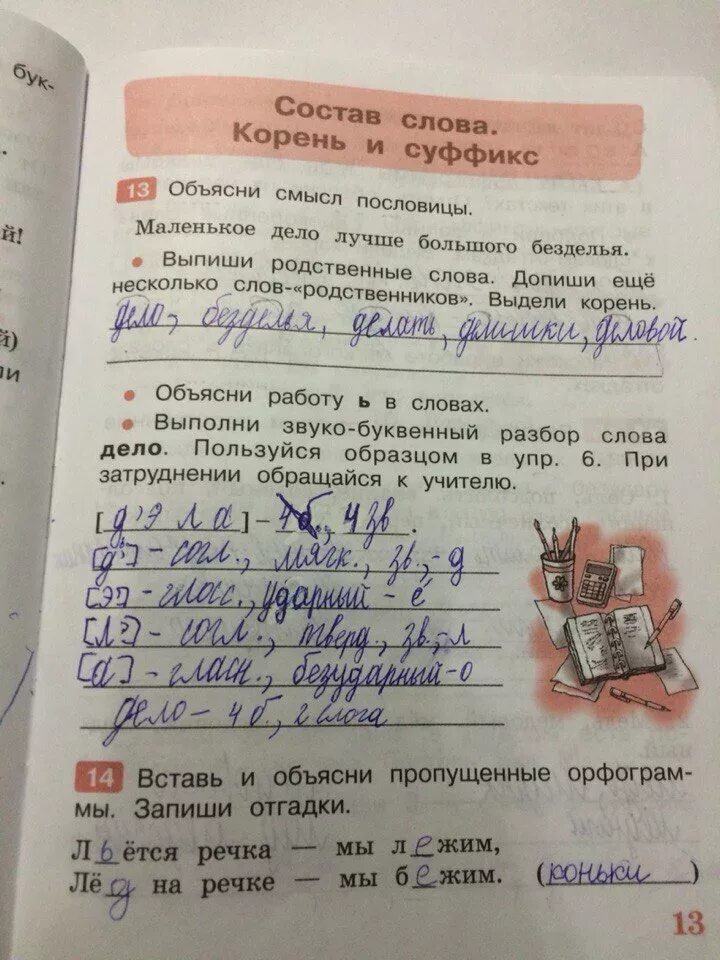 бук-
й!
й)
ли
Состав слова.
Корень и суффикс
13 Объясни смысл пословицы.
Маленькое дело лучше большого безделья.
• Выпиши родственные слова. Допиши ещё
несколько слов-«родственников». Выдели корень.
дело, безделья, делать, делишки, деловой.
• Объясни работу ь в словах.
• Выполни звуко-буквенный разбор слова
дело. Пользуйся образцом в упр. 6. При
затруднении обращайся к учителю.
[д'эла] – 4 б., 4 зв.
[д'] - согл., мягк., зв., - д
[э] - гласс., ударный - е
[л] - согл., тверд., зв., - л
[а] - гласн., безударный - о
Дело - 4 б., 2 слога
14 Вставь и объясни пропущенные орфограм-
мы. Запиши отгадки.
Льётся речка — мы лежим,
Лёд на речке — мы бежим. (коньки)
13